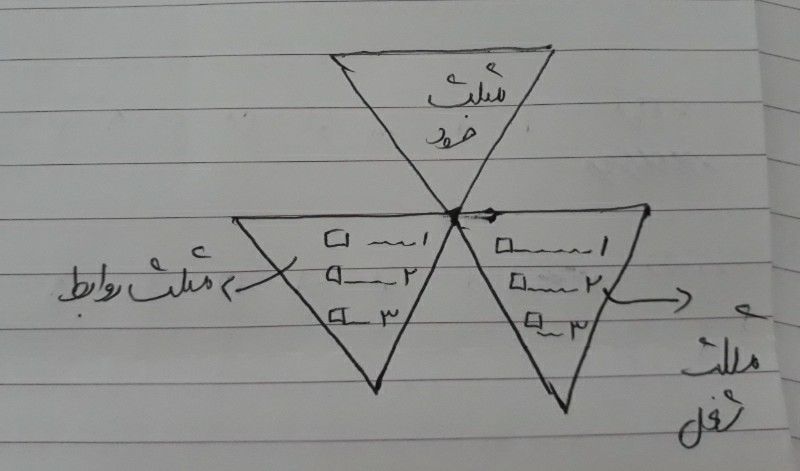 مثلث
خود
۱
۲
۳
مثلث روابط
۱
۲
۳
مثلث
شغل